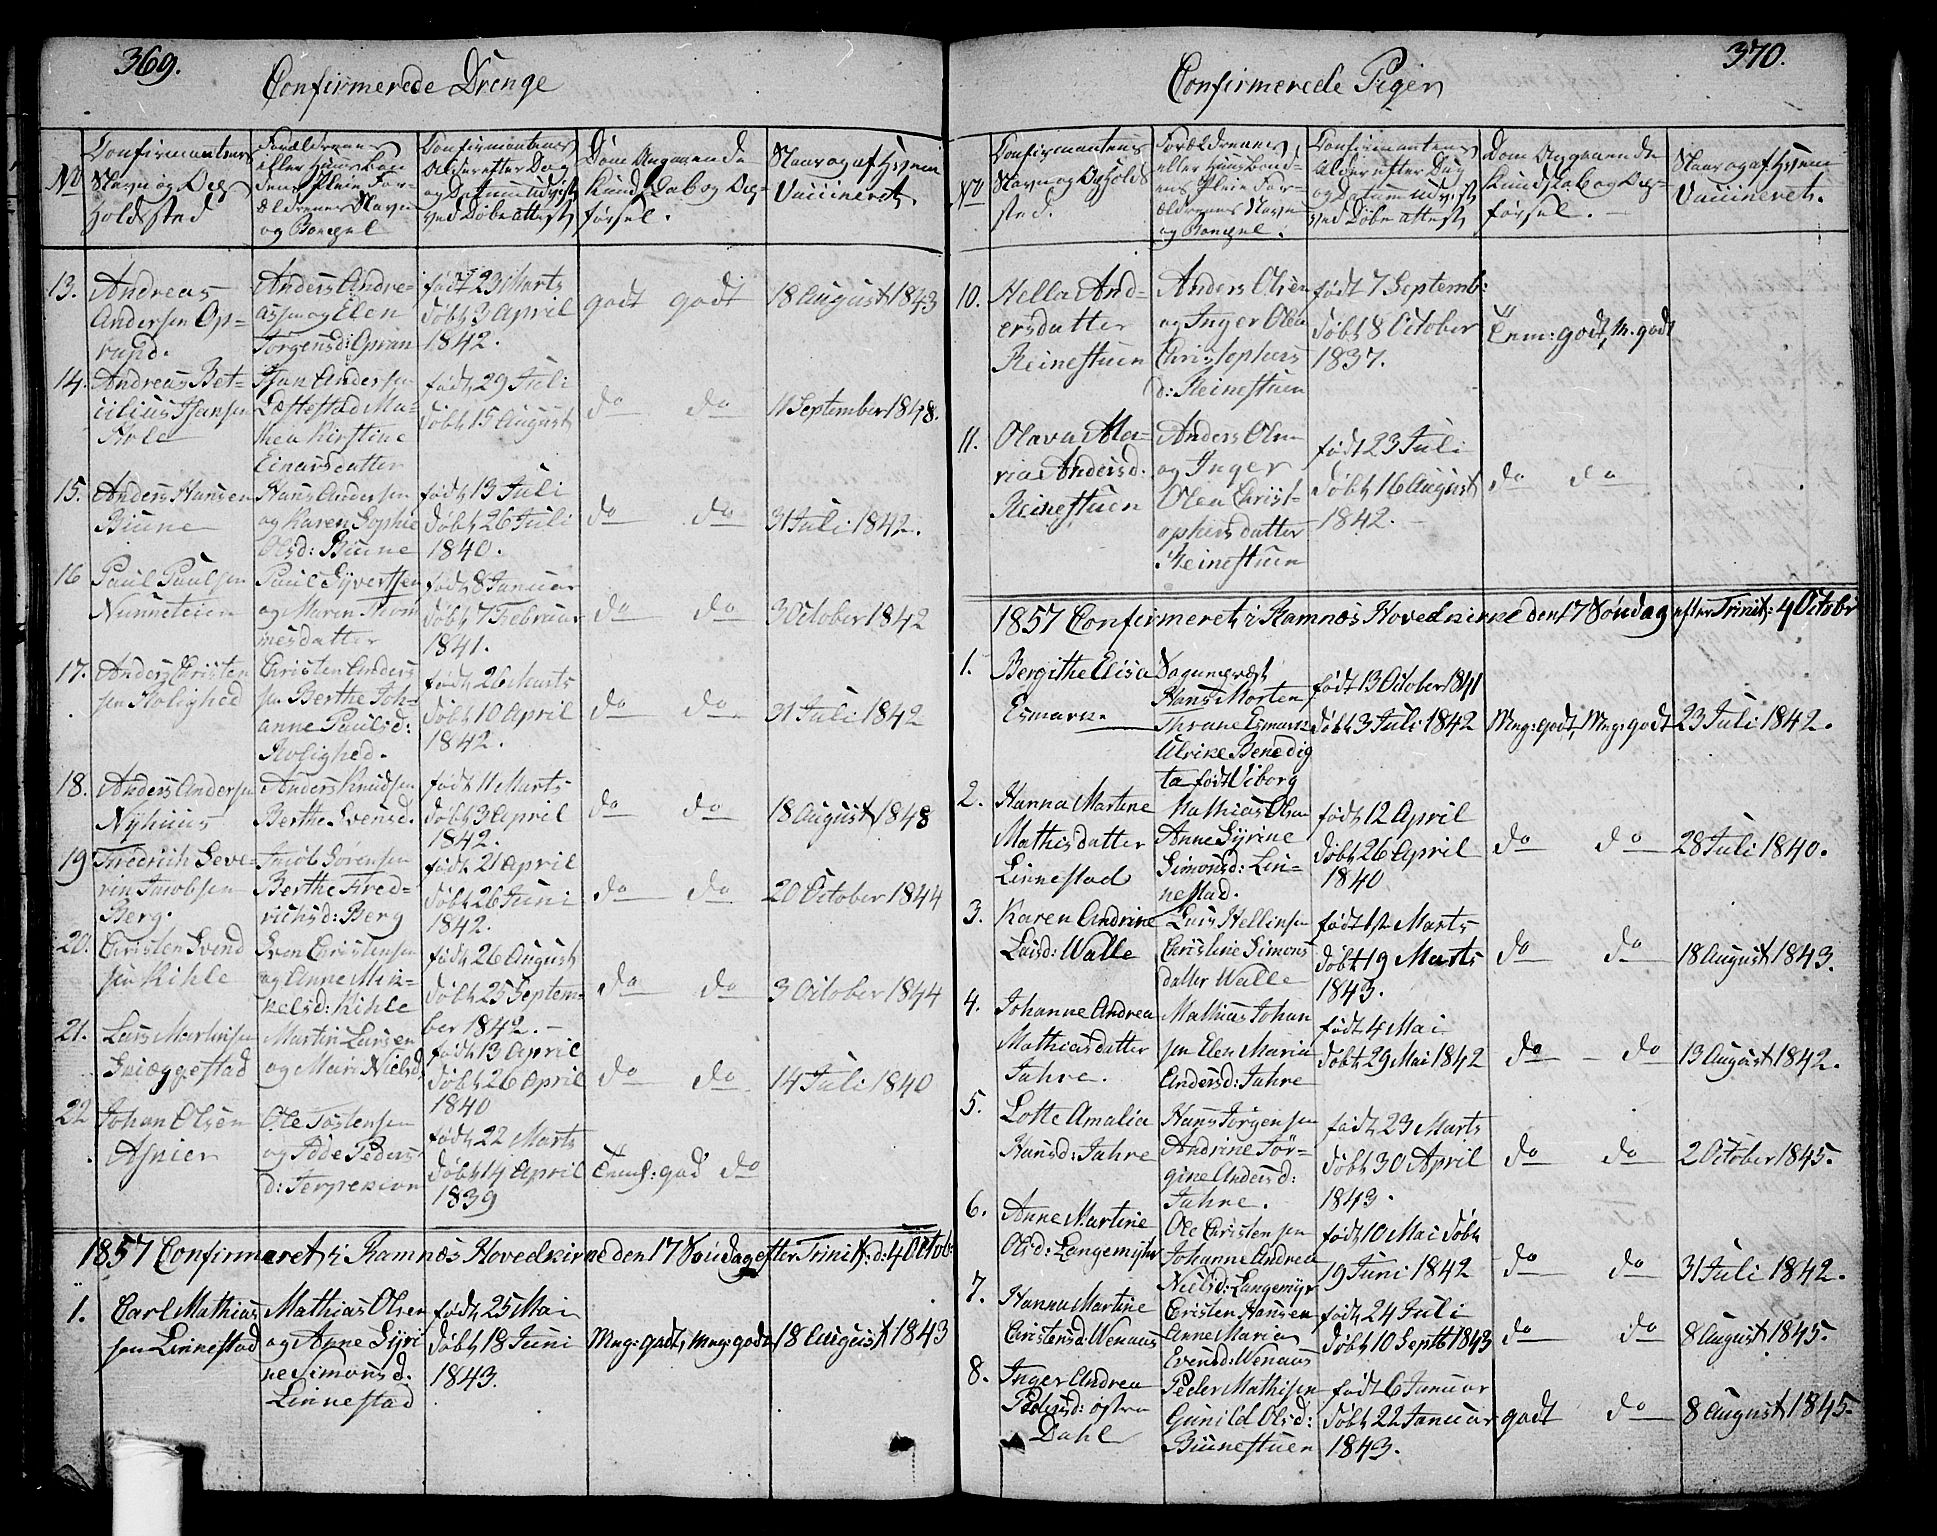 369.
Confirmerede Drenge
No
Confirmantens
Navn og Op-
holdssted
Forældrenes
eller Huusbon
dens Pleie For-
ældrenes Navne
og Bopæl
Confirmantens
Alder efter Dag
og Datum udvist
ved Døbe attest
Dom Angaaende
Kundskab og Op-
førsel.
Naar og af hvem
Vaccineret
13.
Andreas
Andersen Op-
rand.
Anders Andre-
assen og Elen
Torgensd: Opran
født 23 Marts
døbt 3 April
1842.
godt godt
18 August 1843
14.
Andreas Bet-
Hole
Hans Andersen
Læstestad Ma-
thea Kirstine
Einarsdatter
født 29 Juli
døbt 15 August
do do
11 September 1848.
15.
Anders Hansen
Biune
Hans Andersen
og Karen Sophie
Olsd: Biune
født 13 Juli
døbt 26 Juli
1840.
do do
31 Juli 1842.
16
Paul Paulsen
Nunneteien
Paul Syvertsen
og Maren Thom
mesdatter
født 8 Januar
døbt 7 Februar
1841.
do do
3 October 1842
17.
Anders Christen
sen Rolighed
Christen Anders
sen Berthe Joh-
anne Paulsd:
Rolighed.
født 26 Marts
døbt 10 April
1842.
do do
31 Juli 1842
18.
Anders Andersen
Nyhuus
Anders Knudsen
Berthe Svensd.
født 11 Marts
døbt 3 April
1842.
do do
18 August 1848
19
Fredrich Seve-
rin Jacobsen
Berg.
Jacob Sørensen
Berthe Fred-
richsd: Berg
født 21 April
døbt 26 Juni
1842.
do do
20 October 1844
20.
Christen Svend
sen Kihle
Sven Christensen
og Anne Mik-
kelsd: Kihle
født 26 August
døbt 25 Septem-
ber 1842. -
do do
3 October 1844
21.
Lars Martinsen
Sniæggestad
Martin Larsen
og Mari Nielsd
født 13 April
døbt 26 April
1840
do do
14 Juli 1840
22
Johan Olsen
Asnier
Ole Tostensen
og Peders
d:
født 22 Marts
døbt 14 April
1839
god do
1857 Confirmeret i Ramnæs Hovedkirke den 17 Søndag efter Trinit: d: 4 Octob
1.
Carl Mathias
sen Linnestad
Mathias Olsen
og Anne Syri
ne Simonsd.
Linnestad
født 25 Mai
døbt 18 Juni
1843.
Mng: godt, Mng: godt
18 August 1843
370.
Confirmerede Piger
No
Confirmantens
Navn og Opholds
sted.
Forældrenes
eller Huusbond-
ens Pleie For-
ældrenes Navne
og Bopæl.
Confirmantens
Alder efter Dag
og Datum udvist
ved Døbe attest
Dom Angaaende
Kundskab og Op-
førsel. -
Naar og af hvem
Vaccineret.
10.
Hella And-
ersdatter
Reinestuen
Anders Olsen
og Inger Olea
Christophers
d: Reinestuen
født 7 Septemb:
døbt 8 October
1837.
Tem: godt, M. godt
11.
Olava Ma-
ria Andersd.
Reinestuen
Anders Olsen
og Inger
Olea Christ-
ophersdatter
Reinestuen
født 23 Juli
døbt 16 August
1842. -
do do
1857 Confirmeret i Ramnæs Hovedkirke den 17 Søndag efter Trinit: 4 Octobr
1.
Bergithe Elisa
Esmark.
Sogneprest
Hans Morten
Thrane Esmark
Ulrike Benedig
ta født Viborg
født 13 October 1841
døbt 3 Juli 1842
Mng: godt, Mng: godt
23 Juli 1842.
2.
Hanna Martine
Mathisdatter
Linnestad
Mathias Olsen
Anne Syrine
Simonsd: Lin-
nestad.
født 12 April
døbt 26 April
1840
do do
28 Juli 1840.
3.
Karen Andrine
Larsd: Walle
Lars Hellinsen
Christine Simons
datter Walle
født 1ste Marts
døbt 19 Marts
1843.
do do
18 August 1843.
4.
Johanne Andrea
Mathiasdatter
Jahre.
Mathias Johan
sen Elen Maria
Andersd: Jahre
født 4 Mai
døbt 29 Mai 1842
do - do
13 August 1842.
5.
Lotte Amalia
Hansd: Jahre
Hans Jörgensen
Andrine Jör-
gine Andersd:
Jahre.
født 23 Marts
døbt 30 April
1843.
do do
2 October 1845.
6.
Anne Martine
Olsd: Langemyhr
Ole Christensen
Johanne Andrea
Nielsd: Langemyr
født 10 Mai døbt
19 Juni 1842
do do
31 Juli 1842.
7.
Hanna Martine
Christensd: Wenaas
Christen Hansen
Anne Maria
Evensd: Wenaas
født 24 Juli
døbt 10 Septb 1843
do do
8 August 1845.
8.
Inger Andrea
Pedersd: østre
Dahl
Peder Mathisen
Gunild Olsd:
Biunestuen
født 6 Januar
døbt 22 Januar
1843.
godt do
8 August 1845.